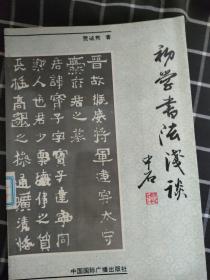 贾诚隽 著
初学书法浅谈
中石
晋故振威将军建宁太守
爨府君之墓
君讳宝子字宝子建宁同
乐人也君少禀瓌伟之质
长挺高邈之操通旷清恪
中国国际广播出版社